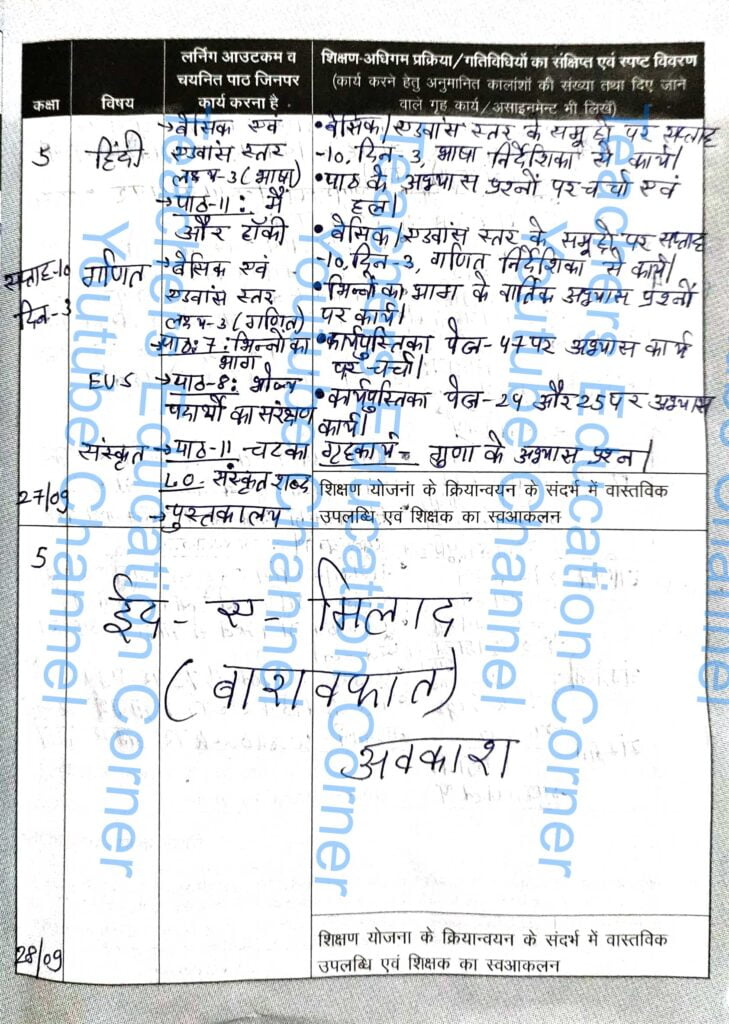 कक्षा
विषय
लर्निंग आउटकम व
चयनित पाठ जिनपर
कार्य करना है
शिक्षण-अधिगम प्रक्रिया/गतिविधियों का संक्षिप्त एवं स्पष्ट विवरण
(कार्य करने हेतु अनुमानित कालांशों की संख्या तथा दिए जाने
वाले गृह कार्य/असाइनमेन्ट भी लिखें)
5
हिंदी
→ बेसिक एवं
एडवांस स्तर
लक्ष्य-3 (भाषा)
→ पाठ-11: मैं
और हॉकी
• बेसिक/एडवांस स्तर के समूहों पर सप्ताह
-10, दिन-3, भाषा निर्देशिका से कार्य।
• पाठ के अभ्यास प्रश्नों पर चर्चा एवं
हल।
सप्ताह-10
दिन-3
गणित
→ बेसिक एवं
एडवांस स्तर
लक्ष्य-3 (गणित)
→ पाठ: 7: भिन्नों का
भाग
• बेसिक/एडवांस स्तर के समूहों पर सप्ताह
-10, दिन-3, गणित निर्देशिका से कार्य।
• भिन्नों का भाग के वार्तिक अभ्यास प्रश्नों
पर कार्य।
• कार्यपुस्तिका पेज-47 पर अभ्यास कार्य
पर चर्चा।
EVS
→ पाठ-8: भोज्य
पदार्थों का संरक्षण
• कार्यपुस्तिका पेज-24 और 25 पर अभ्यास
कार्य।
संस्कृत
→ पाठ-11 - चटका
LO - संस्कृत शब्द
→ पुस्तकालय
गृहकार्य - गुणा के अभ्यास प्रश्न।
27/09
शिक्षण योजना के क्रियान्वयन के संदर्भ में वास्तविक
उपलब्धि एवं शिक्षक का स्वआकलन
5
ईद - ए - मिलाद
(बारावफात)
अवकाश
28/09
शिक्षण योजना के क्रियान्वयन के संदर्भ में वास्तविक
उपलब्धि एवं शिक्षक का स्वआकलन
Teachers Education Corner
Youtube Channel
Teachers Education Corner
Youtube Channel